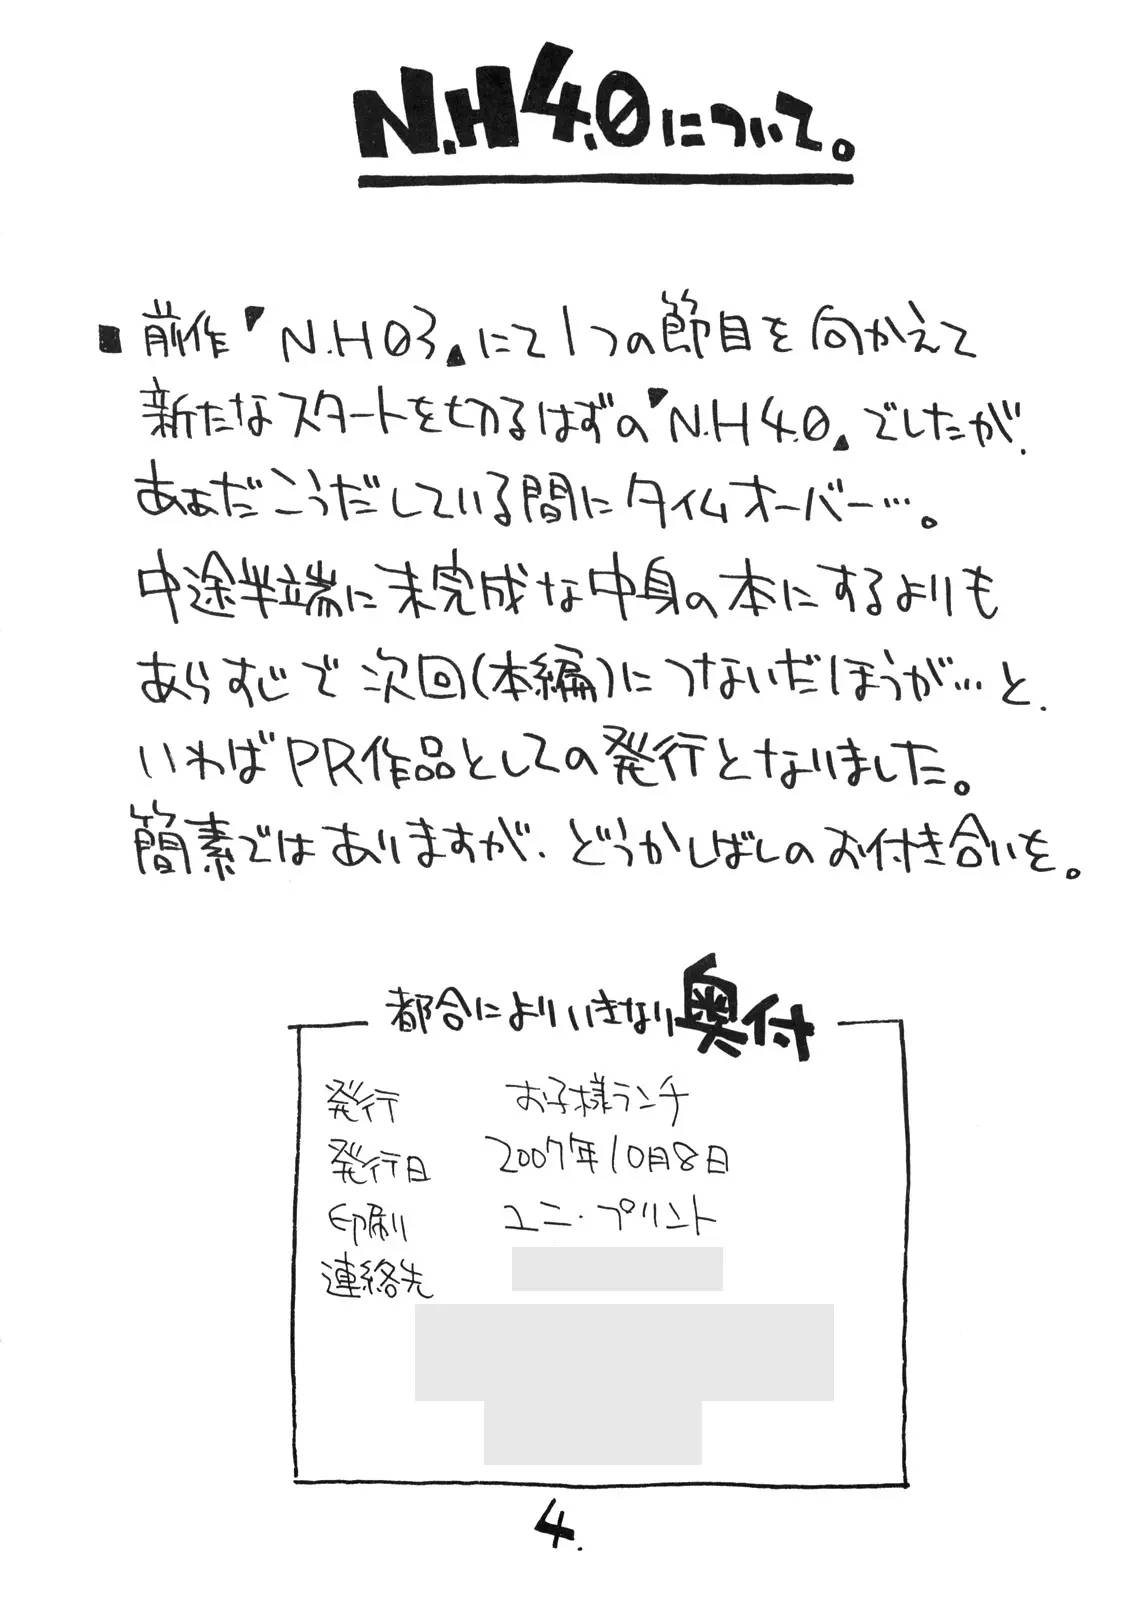 N.H4.0について。
■前作『N.H03』にて1つの節目を向かえて
新たなスタートを切るはずの『N.H4.0』でしたが.
あぁだこうだしている間にタイムオーバー…。
中途半端に未完成な中身の本にするよりも
あらすじで次回(本編)につないだほうが…と.
いわばPR作品としての発行となりました。
簡素ではありますが.どうかしばしのお付き合いを。
都合によりいきなり奥付
発行 お子様ランチ
発行日 2007年10月8日
印刷 ユニ・プリント
連絡先
4.